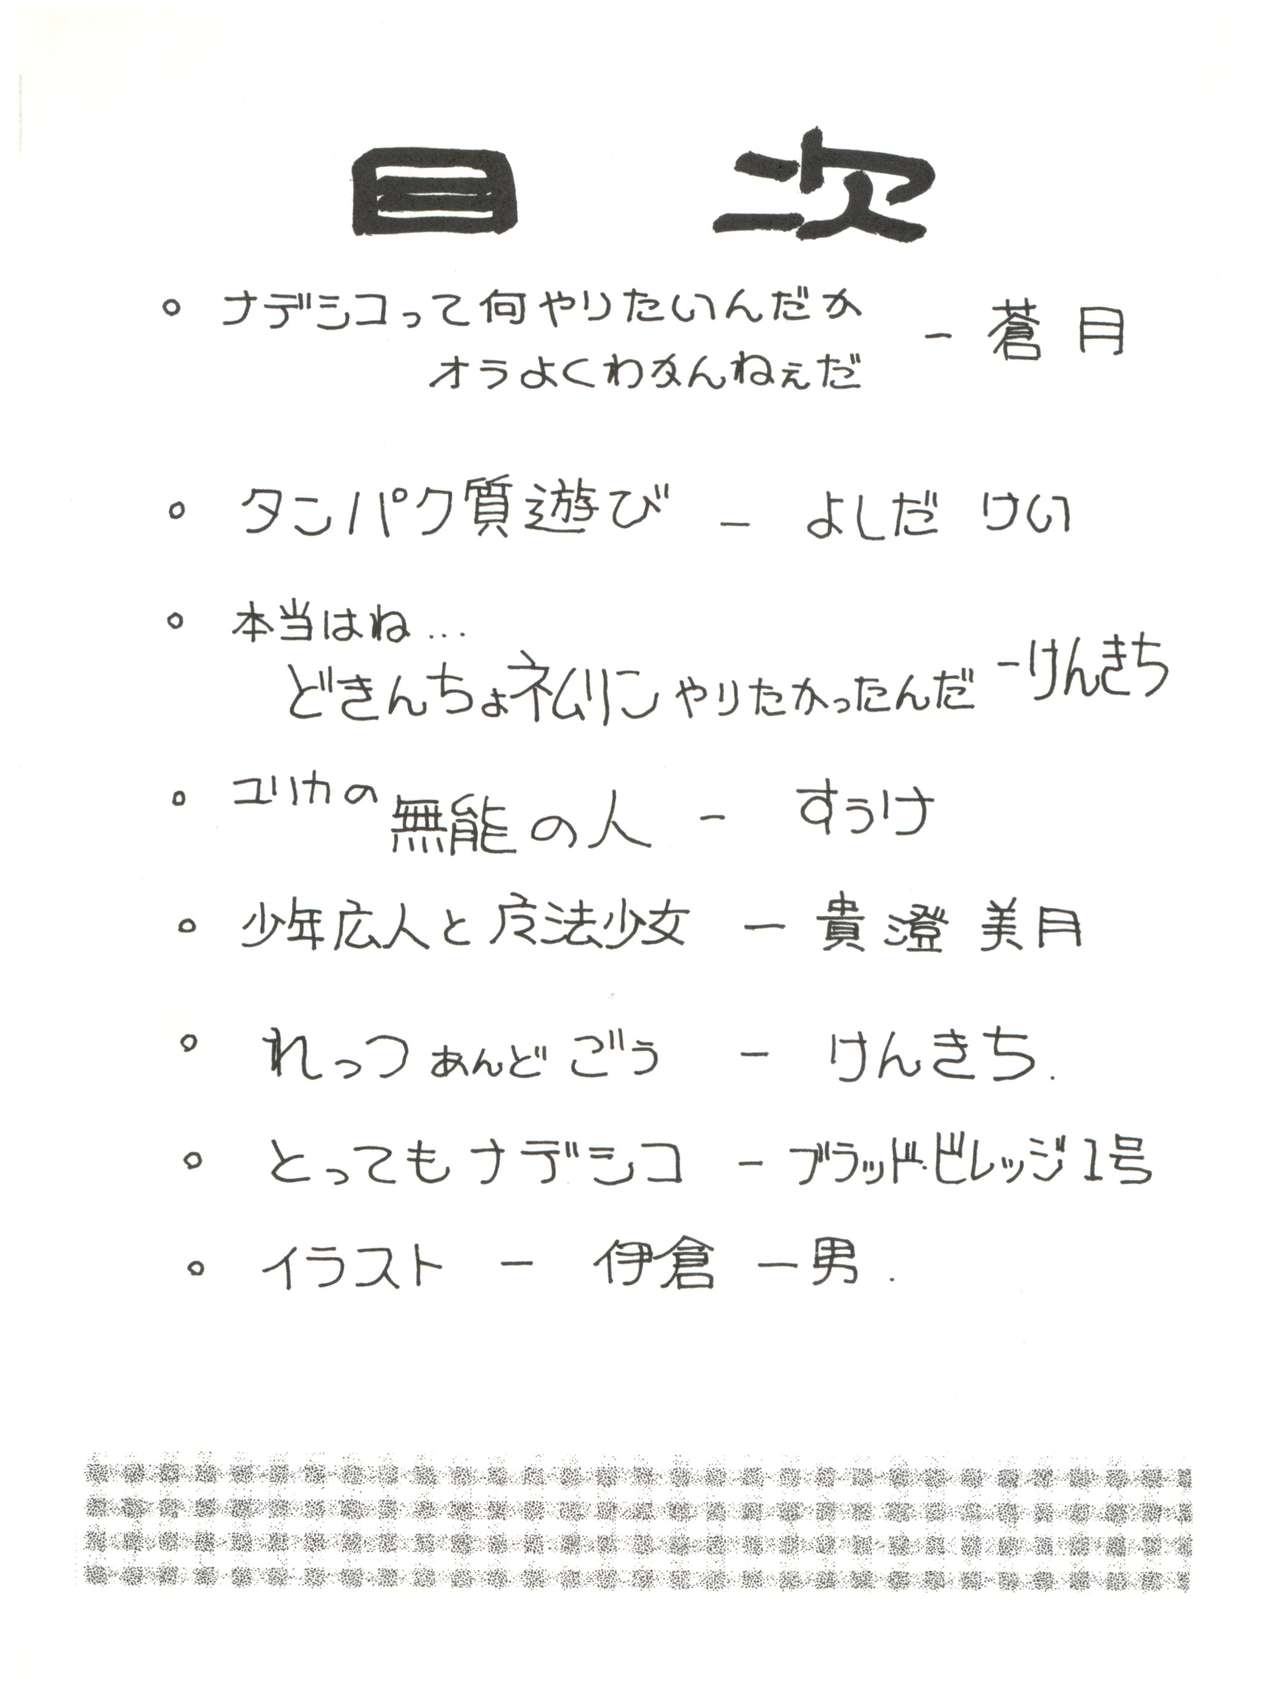 目次
。ナデシコって何やりたいんだか
オラよくわかんねぇだ ー 蒼月
。タンパク質遊び ー よしだ けい
。本当はね...
どきんちょネムリンやりたかったんだ ーけんきち
。ユリカの無能の人 ー すぅけ
。少年広人と魔法少女 ー 貴澄 美月
。れっつあんどごう ー けんきち.
。とってもナデシコ ー ブラッド・ビレッジ1号
。イラスト ー 伊倉 一男.